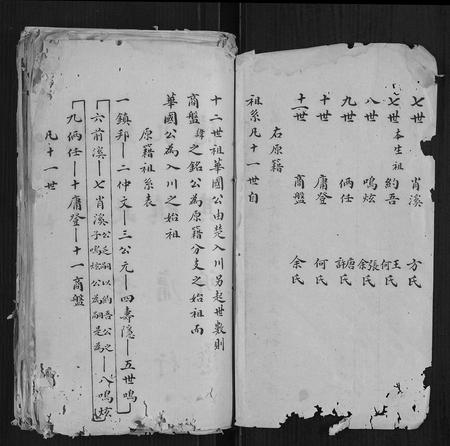 七世 肖溪 方氏
七世 本生祖 約吾 王氏 何氏
八世 鳴炫 張氏 余氏
九世 俩任 唐氏 許氏
十世 庸登 何氏
十一世 商盤 余氏
右原籍
祖系凡十一世自
十二世祖華國公由楚入川另起世數則
商盤 之銘公為原籍分支之始祖而
華國公為入川之始祖
原籍祖系表
一鎮邦—二仲文—三公元—四壽隱—五世鳴
六前溪—七肖溪 公乏嗣以約吾公之子鳴炫公為嗣是為—八鳴炫
九俩任—十庸登—十一商盤
凡十一世